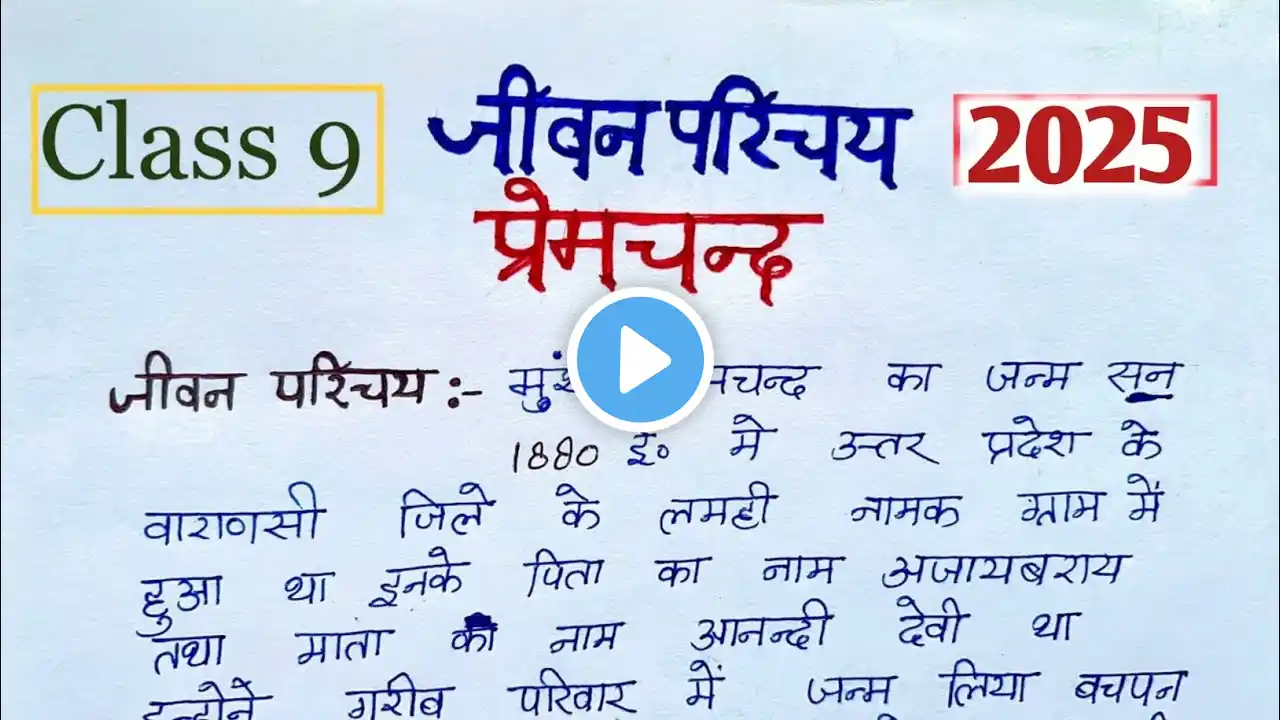 Class 9
जीवन परिचय
2025
प्रेमचन्द
जीवन परिचय :- का जन्म सन
1880 ई० मे उत्तर प्रदेश के
वाराणसी जिले के लमही नामक ग्राम में
हुआ था इनके पिता का नाम अजायबराय
तथा माता का नाम आनन्दी देवी था
इन्होने गरीब परिवार में जन्म लिया बचपन